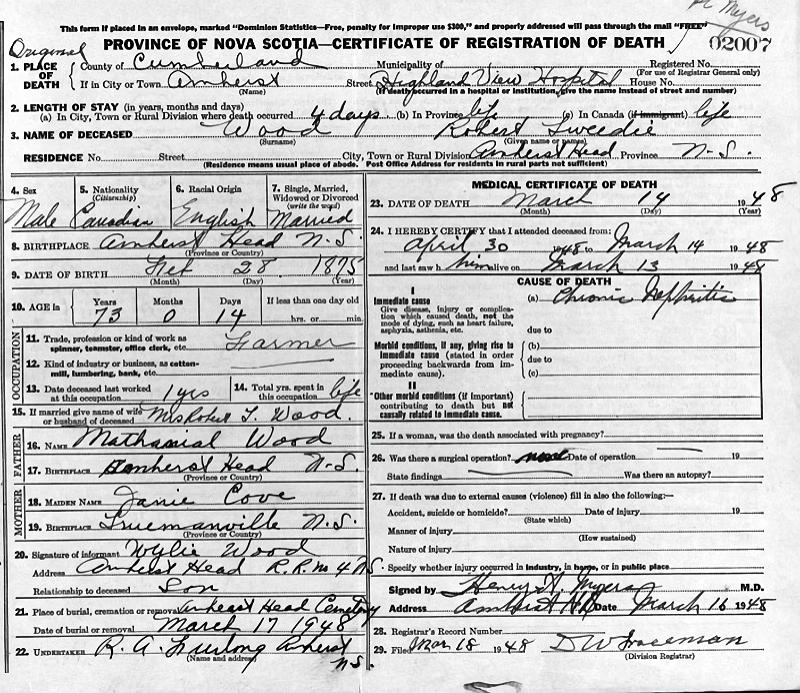 Dr Myers
This form if placed in an envelope, marked "Dominion Statistics—Free, penalty for improper use $300," and properly addressed will pass through the mail "FREE"
Original
PROVINCE OF NOVA SCOTIA—CERTIFICATE OF REGISTRATION OF DEATH 02007
1. PLACE OF DEATH County of Cumberland Municipality of Registered No.
(For use of Registrar General only)
If in City or Town Amherst Street Highland View Hospital House No.
(Name) (If death occurred in a hospital or institution, give the name instead of street and number)
2. LENGTH OF STAY (in years, months and days)
(a) In City, Town or Rural Division where death occurred 4 days (b) In Province life (c) In Canada (if immigrant) life
3. NAME OF DECEASED Wood Robert Tweedie
(Surname) (Given name or names)
RESIDENCE No. Street City, Town or Rural Division Amherst Head Province N-S.
(Residence means usual place of abode. Post Office Address for residents in rural parts not sufficient)
4. Sex 5. Nationality (Citizenship) 6. Racial Origin 7. Single, Married, Widowed or Divorced (write the word)
Male Canadian English Married
8. BIRTHPLACE Amherst Head N-S.
(Province or Country)
9. DATE OF BIRTH Feb 28 1875
(Month) (Day) (Year)
10. AGE in Years Months Days If less than one day old
73 0 14 hrs. or min.
OCCUPATION
11. Trade, profession or kind of work as spinner, teamster, office clerk, etc. Farmer
12. Kind of industry or business, as cotton-mill, lumbering, bank, etc.
13. Date deceased last worked at this occupation 1 yrs 14. Total yrs. spent in this occupation life
15. If married give name of wife or husband of deceased Mrs Robert T. Wood.
FATHER
16. NAME Nathanial Wood
17. BIRTHPLACE Amherst Head N-S.
(Province or Country)
MOTHER
18. MAIDEN NAME Janie Cove
19. BIRTHPLACE Truemanville N-S.
(Province or Country)
20. Signature of informant Wylie Wood
Address Amherst Head R.R. no 4 N.S.
Relationship to deceased Son
21. Place of burial, cremation or removal Amherst Head Cemetery
Date of burial or removal March 17 1948
22. UNDERTAKER R. A. Furlong Amherst
(Name and address) N.S.
MEDICAL CERTIFICATE OF DEATH
23. DATE OF DEATH March 14 1948
(Month) (Day) (Year)
24. I HEREBY CERTIFY that I attended deceased from:
April 30 1948 to March 14 1948
and last saw him alive on March 13 1948
CAUSE OF DEATH
I
Immediate cause (a) Chronic Nephritis
Give disease, injury or complication which caused death, not the mode of dying, such as heart failure, asphyxia, asthenia, etc.
due to
Morbid conditions, if any, giving rise to immediate cause (stated in order proceeding backwards from immediate cause). (b)
due to
(c)
II
Other morbid conditions (if important) contributing to death but not causally related to immediate cause.
25. If a woman, was the death associated with pregnancy?
26. Was there a surgical operation? none Date of operation 19
State findings Was there an autopsy?
27. If death was due to external causes (violence) fill in also the following:—
Accident, suicide or homicide? Date of injury 19
(State which)
Manner of injury
(How sustained)
Nature of injury
Specify whether injury occurred in industry, in home, or in public place
Signed by Henry Myers M.D.
Address Amherst N.S. Date March 16 1948
28. Registrar's Record Number
29. Filed Mar 18 1948
(Division Registrar)